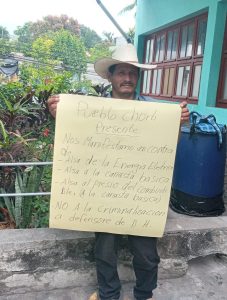 Pueblo chorti
Presente
Nos Manifestamos en contra
De:
- Alsa de la Energía Eletrica
- Alsa a la canasta basica
- Alsa al presio del combustible
a la canasta basica)
NO A la Criminalización
a defensores de DH